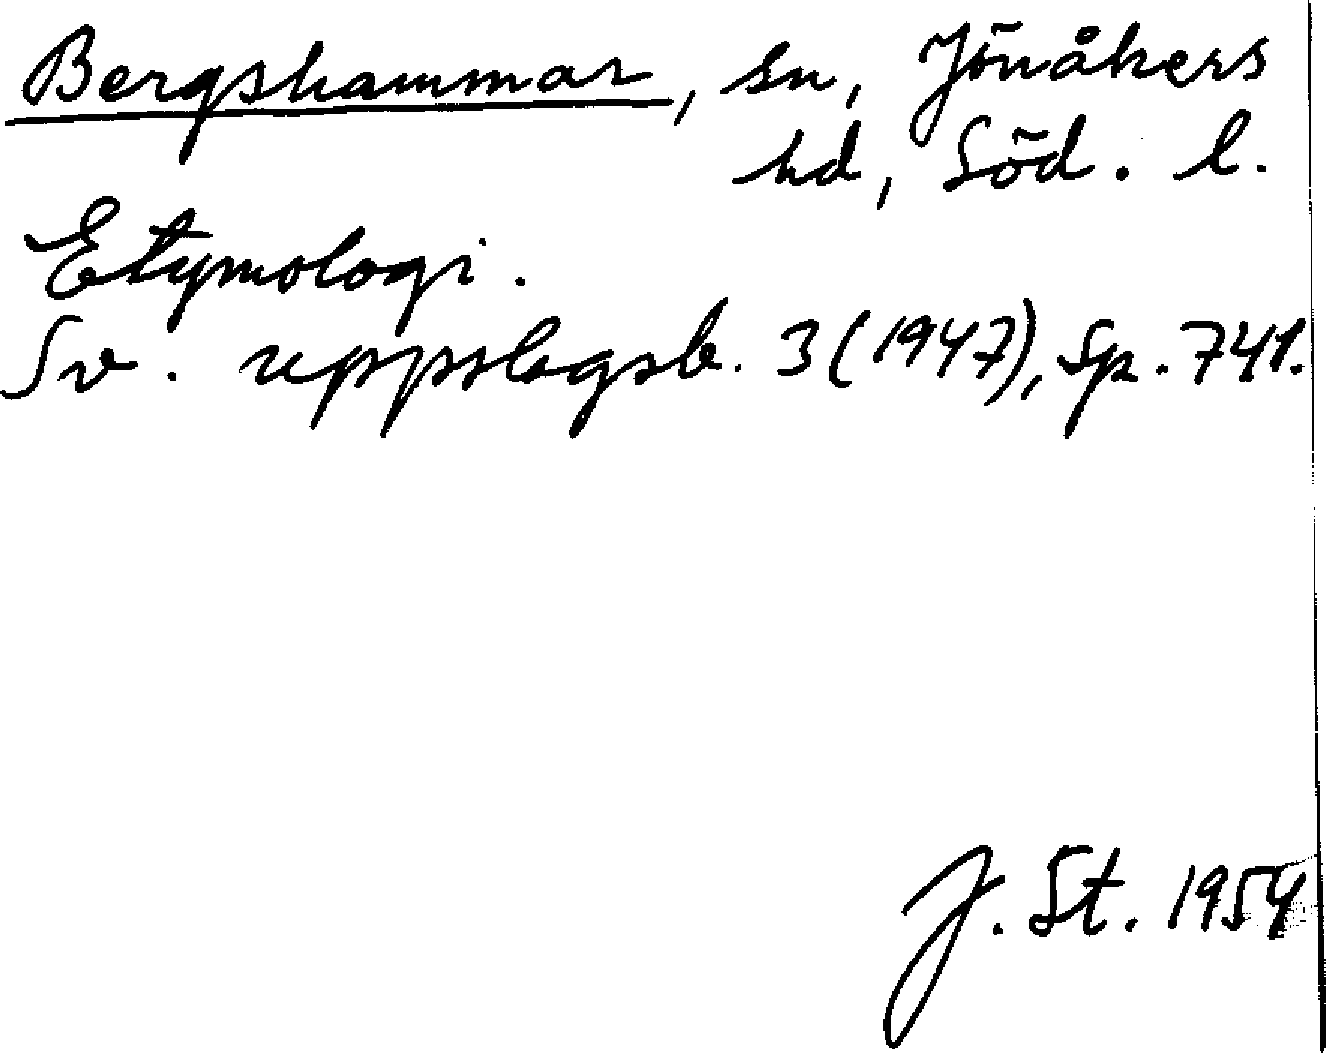 Bergshammar, sn, Jönåkers
hd, Söd. l.
Etymologi.
Sv. uppslagsb. 3 (1947), sp. 741.
J. St. 1954